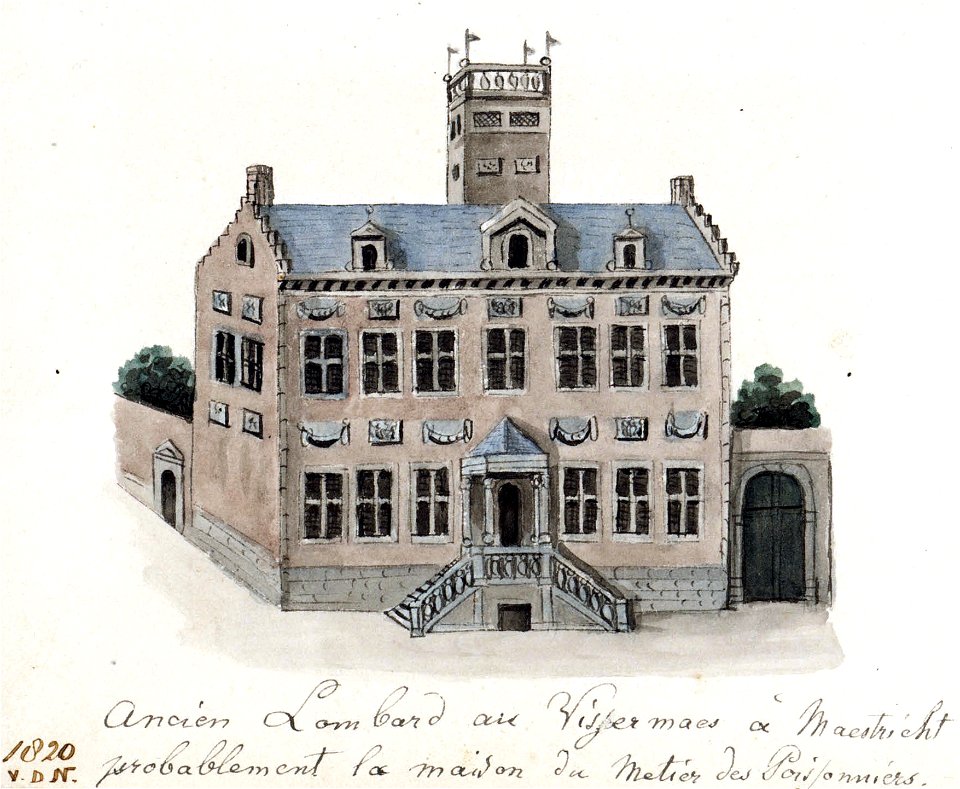 Ancien Lombard au Vissermaes à Maestricht
probablement la maison du Metier des Poissonniers.
1820
V.D.N.